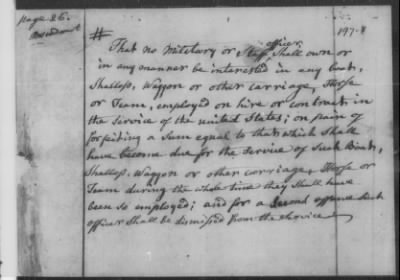 Page 26.
Amendment
197.8
#
That no Military or Staff officer, Shall own or
in any manner be interested in any boat,
Shallop, Waggon or other carriage, Horse
or Team, employed on hire or contract in
the Service of the united States; on pain of
forfeiting a Sum equal to that which Shall
have become due for the Service of Such Boat,
Shallop, Waggon or other carriage, Horse or
Team during the whole time they Shall have
been so employed; and for a Second offence Such
officer Shall be dismissed from the Service